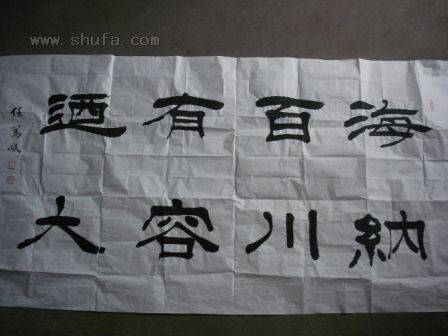 www.shufa.com
海納
百川
有容
迺大